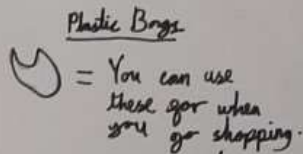 Plastic Bags
= You can use
these for when
you go shopping.